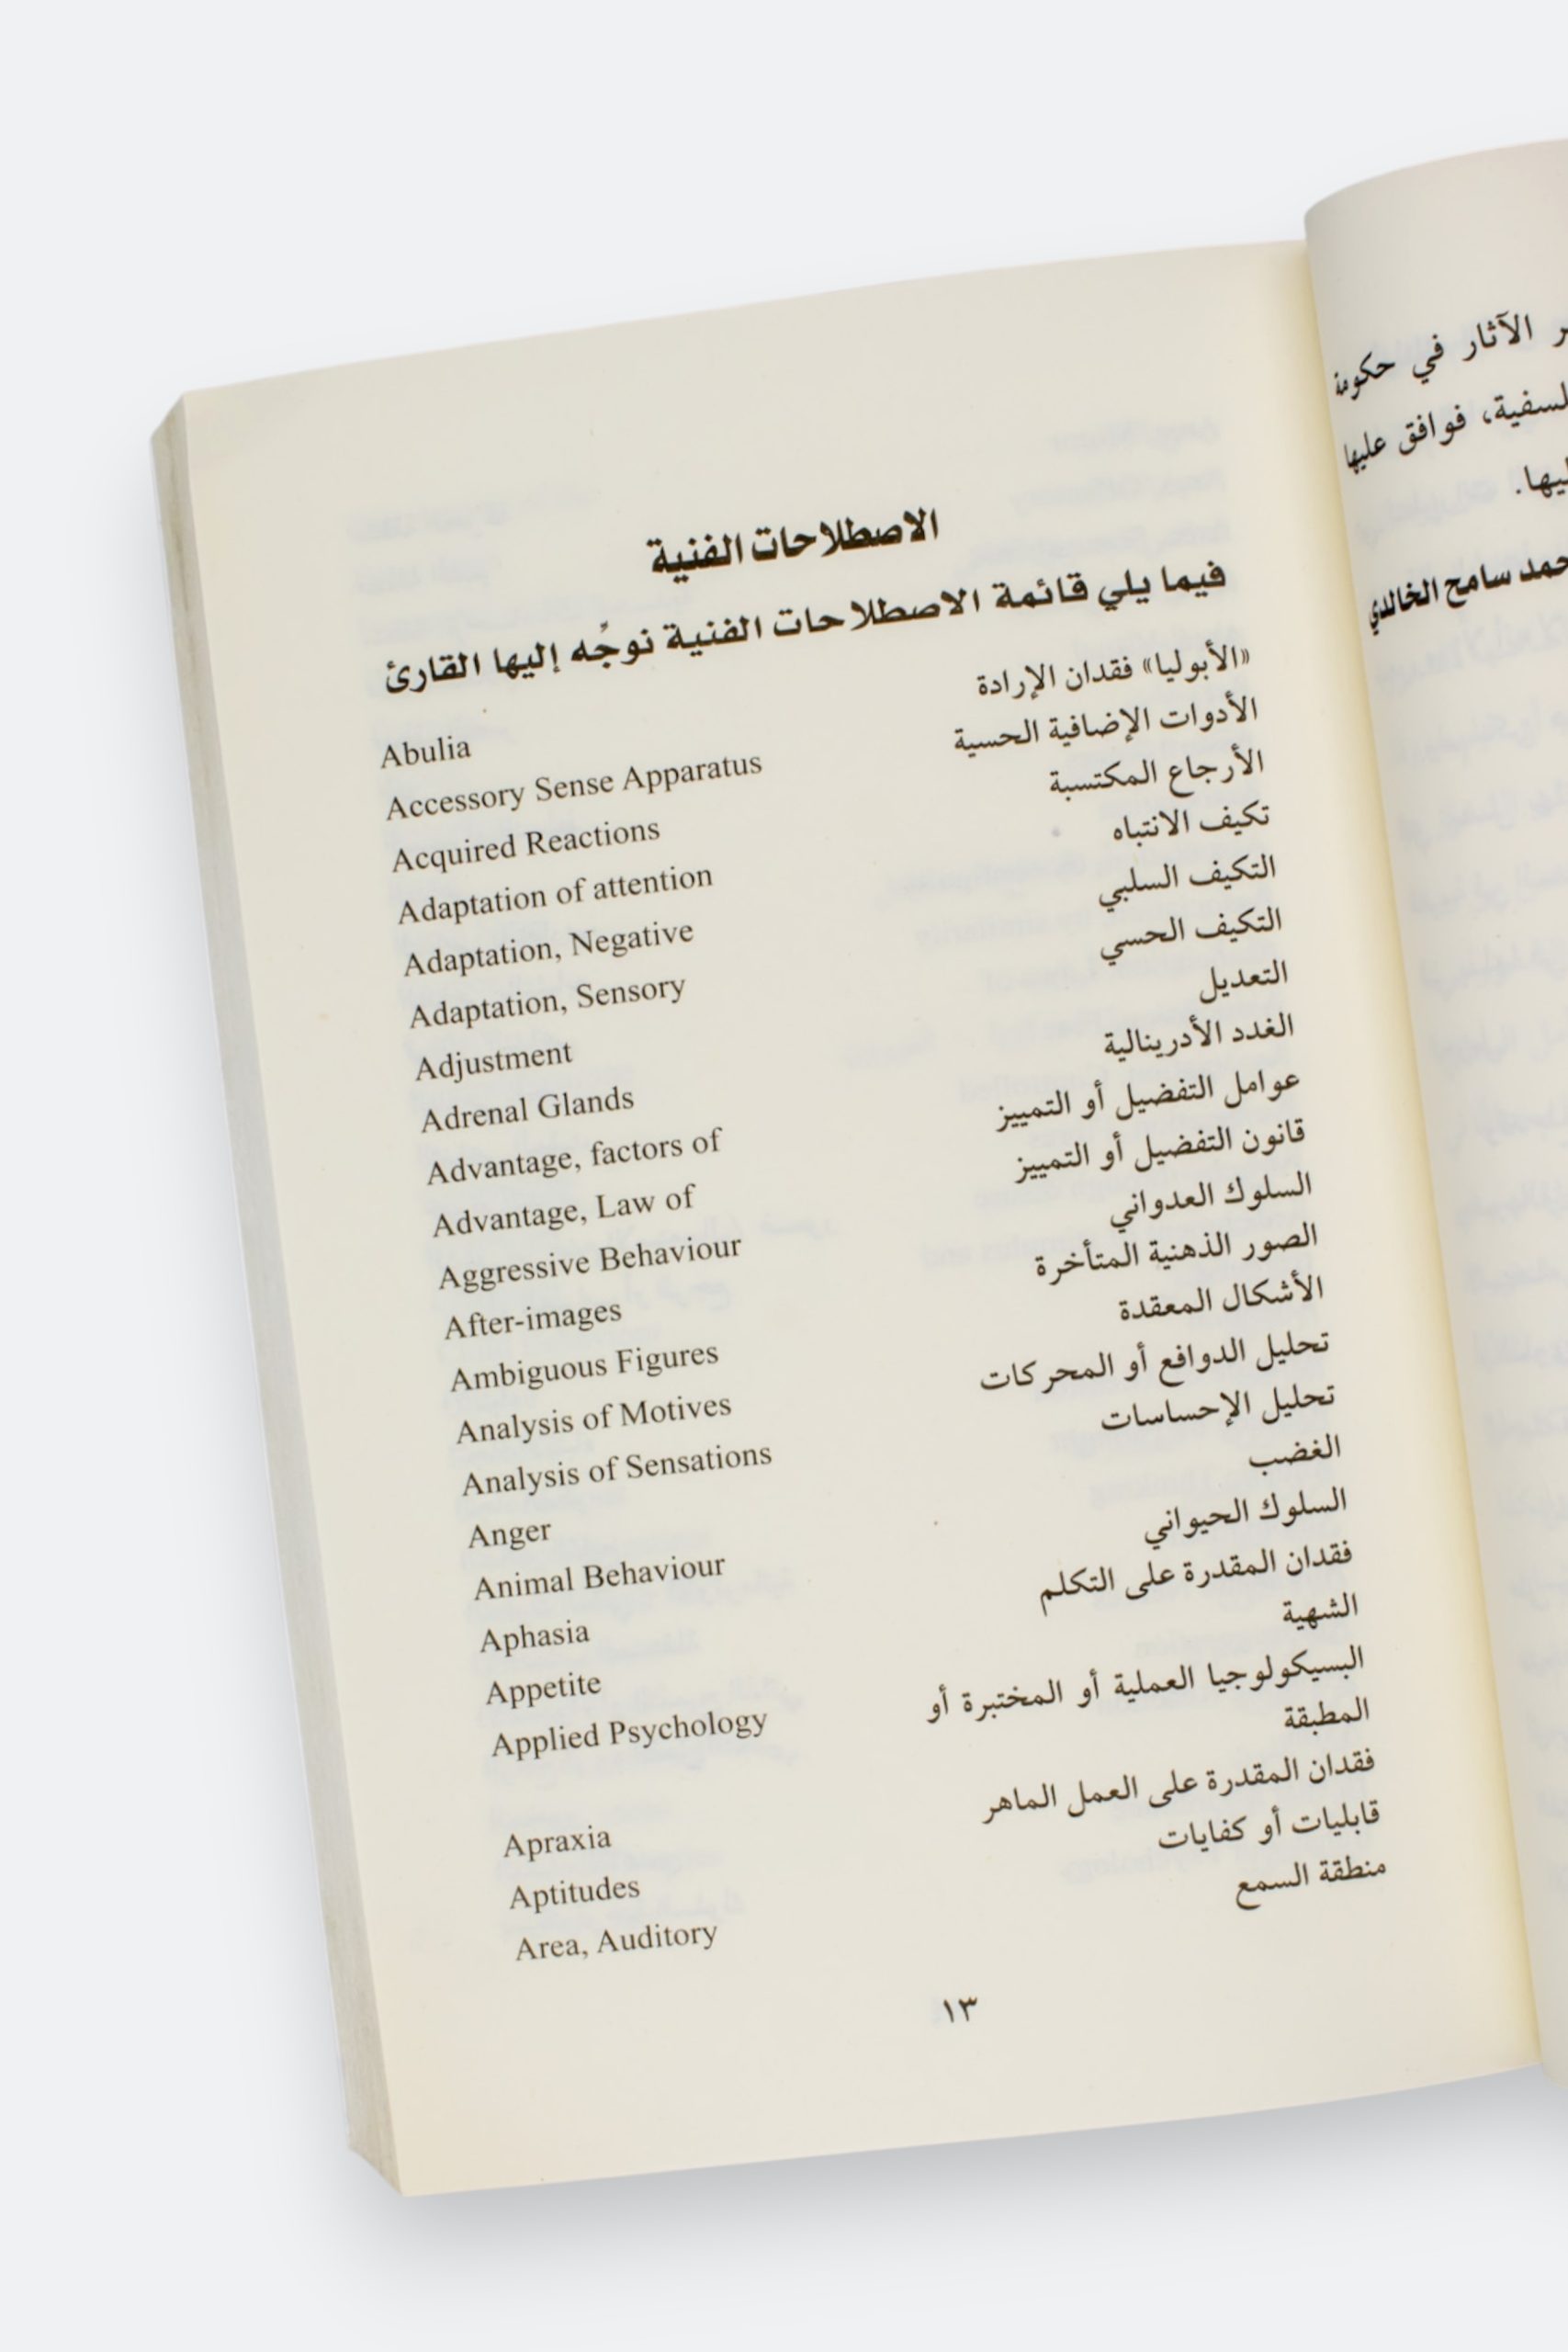 ر الآثار في حكومة
فوافق عليها
حمد سامح الخالدي
الاصطلاحات الفنية
فيما يلي قائمة الاصطلاحات الفنية نوجّه إليها القارئ
Abulia «الأبوليا» فقدان الإرادة
Accessory Sense Apparatus الأدوات الإضافية الحسية
Acquired Reactions الأرجاع المكتسبة
Adaptation of attention تكيف الانتباه
Adaptation, Negative التكيف السلبي
Adaptation, Sensory التكيف الحسي
Adjustment التعديل
Adrenal Glands الغدد الأدرينالية
Advantage, factors of عوامل التفضيل أو التمييز
Advantage, Law of قانون التفضيل أو التمييز
Aggressive Behaviour السلوك العدواني
After-images الصور الذهنية المتأخرة
Ambiguous Figures الأشكال المعقدة
Analysis of Motives تحليل الدوافع أو المحركات
Analysis of Sensations تحليل الإحساسات
Anger الغضب
Animal Behaviour السلوك الحيواني
Aphasia فقدان المقدرة على التكلم
Appetite الشهية
Applied Psychology البسيكولوجيا العملية أو المختبرة أو
المطبقة
Apraxia فقدان المقدرة على العمل الماهر
Aptitudes قابليات أو كفايات
Area, Auditory منطقة السمع
١٣